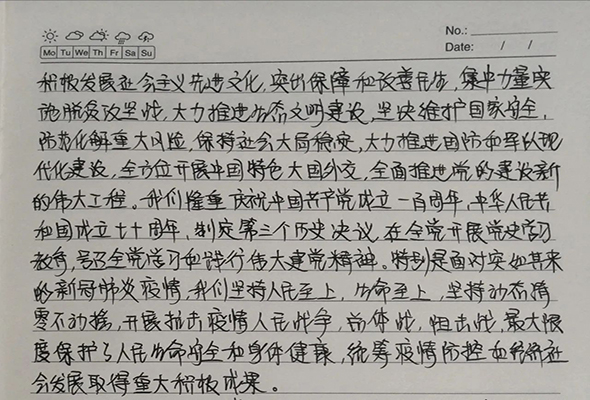 No.:
Mo Tu We Th Fr Sa Su
Date: / /
积极发展社会主义先进文化,突出保障和改善民生,集中力量实
施脱贫攻坚战,大力推进生态文明建设,坚决维护国家安全,
防范化解重大风险,保持社会大局稳定,大力推进国防和军队现
代化建设,全方位开展中国特色大国外交,全面推进党的建设新
的伟大工程。我们隆重庆祝中国共产党成立一百周年,中华人民共
和国成立七十周年,制定第三个历史决议,在全党开展党史学习
教育,号召全党学习和践行伟大建党精神。特别是面对突如其来
的新冠肺炎疫情,我们坚持人民至上,生命至上,坚持动态清
零不动摇,开展抗击疫情人民战争,总体战,阻击战,最大限
度保护了人民生命安全和身体健康,统筹疫情防控和经济社
会发展取得重大积极成果。